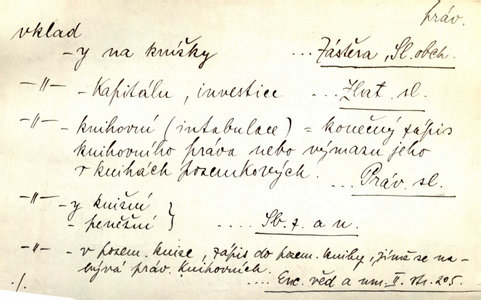 práv.
vklad
- y na knížky ... Zástěra, Sl. obch.
-"- - Kapitálu, investice ... Zlat. sl.
-"- - knihovní (intabulace) = konečný zápis
knihovního práva nebo výmazu jeho
v knihách pozemkových. ... Práv. sl.
-"- - y knižní
- peněžní } ... Sb. z. a n.
-"- - v pozem. knize, zápis do pozem. knihy, jímž se na-
bývá práv. knihovních.
... Enc. věd a um. II. str. 205.
./.